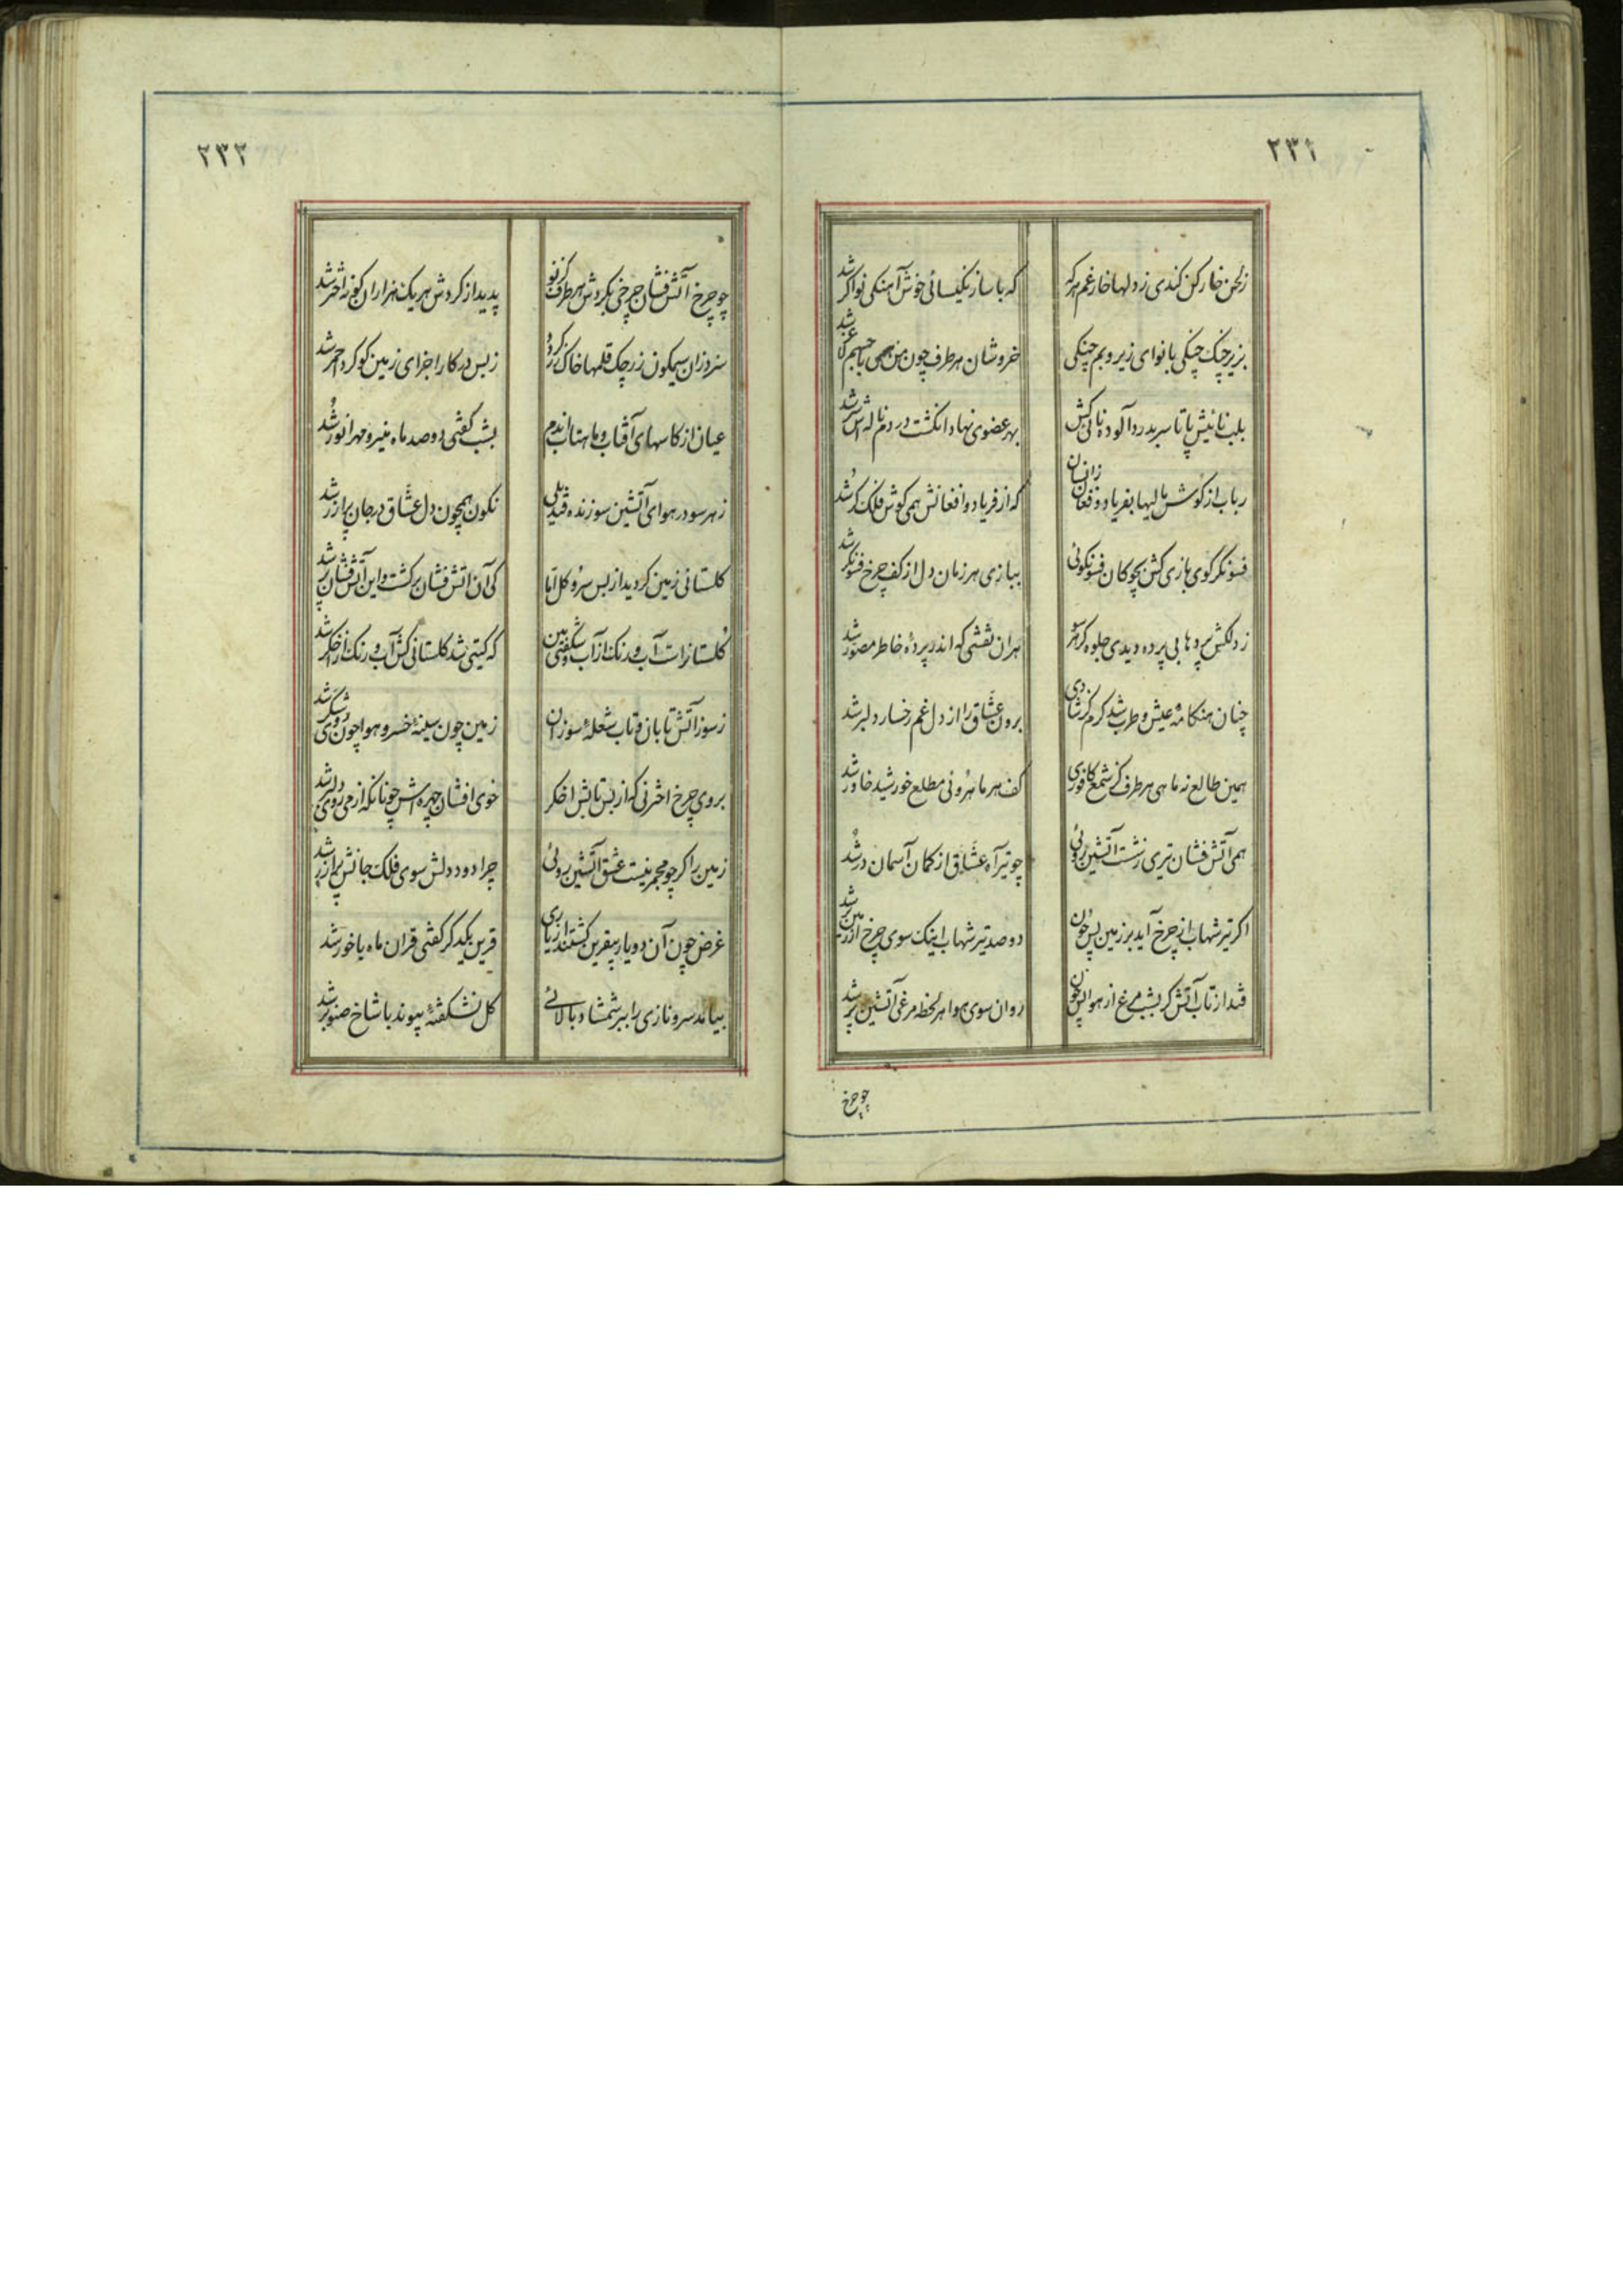 ۲۳۱
زلحن خارکن کندی ز دلها خار غم هر که
که با ساز نکیسائی خوش آهنکی نواکر شد
بزیر چنک چنکی با نوای زیر و بم چنکی
خروشان هر طرف چون من همی با جسم شد
بلب نائیش پا تا سر بدرد آلوده نالی کش
بهر عضوی نهاد انکشت در دم ناله شد
رباب از کوش مالیها بفریاد و فغان زانسان
که از فریاد و افغانش همی کوش فلک کر شد
فسونکر کوی بازی کش بچوکان فسونکوئی
ببازی هر زمان دل از کف چرخ فسونکر شد
ز دلکش پردها بی پرده دیدی جلوه کر هر سو
هران نقشی که اندر پردۀ خاطر مصور شد
چنان هنکامۀ عیش و طرب شد کرم کز شادی
برون عشاق را از دل غم رخسار دلبر شد
همین طالع نه ماهی هر طرف کز شمع کافوری
کف هر ماهروئی مطلع خورشید خاور شد
همی آتش فشان تیری ز شست آتشین روئی
چو تیر آه عشاق از کمان آسمان در شد
اکر تیر شهاب از چرخ آید بر زمین پس چون
دو صد تیر شهاب اینک سوی چرخ از زمین بر شد
فتد از تاب آتش کر بشب مرغ از هوا پس چون
روان سوی هوا هر لحظه مرغی آتشین پر شد
چو چرخ
۲۳۲
چو چرخ آتش فشان چرخی بکردش هر طرف کز نو
پدید از کردش هر یک هزاران کونه اختر شد
سزد زان سیمکون زرچک قلمها خاک زر کردد
ز بس در کار اجزای زمین کوکرد احمر شد
عیان از کاسهای آفتاب و ماهتاب اندم
بشب کفتی دو صد ماه منیر و مهر انور شد
ز هر سو در هوای آتشین سوزنده قندیلی
نکون همچون دل عشاق در جان پر آذر شد
کلستانی زمین کردید از بس سرو و کل اما
کی آن آتش فشان برکشت و این آتش فشان بر شد
کلستانرات آب و رنک از آب و شکفتی بین
که کیتی شد کلستانی کش آب و رنک از اخکر شد
ز سوز آتش تابان و تاب شعلۀ سوزان
زمین چون سینۀ خسرو هوا چون روی شکر شد
بروی چرخ اخترنی که از بس تابش اخکر
خوی افشان چهره‌اش چونانکه از می روی دلبر شد
زمین را کر چو مجمر نیست عشق آتشین روئی
چرا دود دلش سوی فلک جانش پر آذر شد
غرض چون آن دو یار بیقرین کشتند از یاری
قرین یکدکر کفتی قران ماه با خور شد
بیامد سرو نازی را ببر شمشاد بالائی
کل نشکفتۀ پیوند با شاخ صنوبر شد